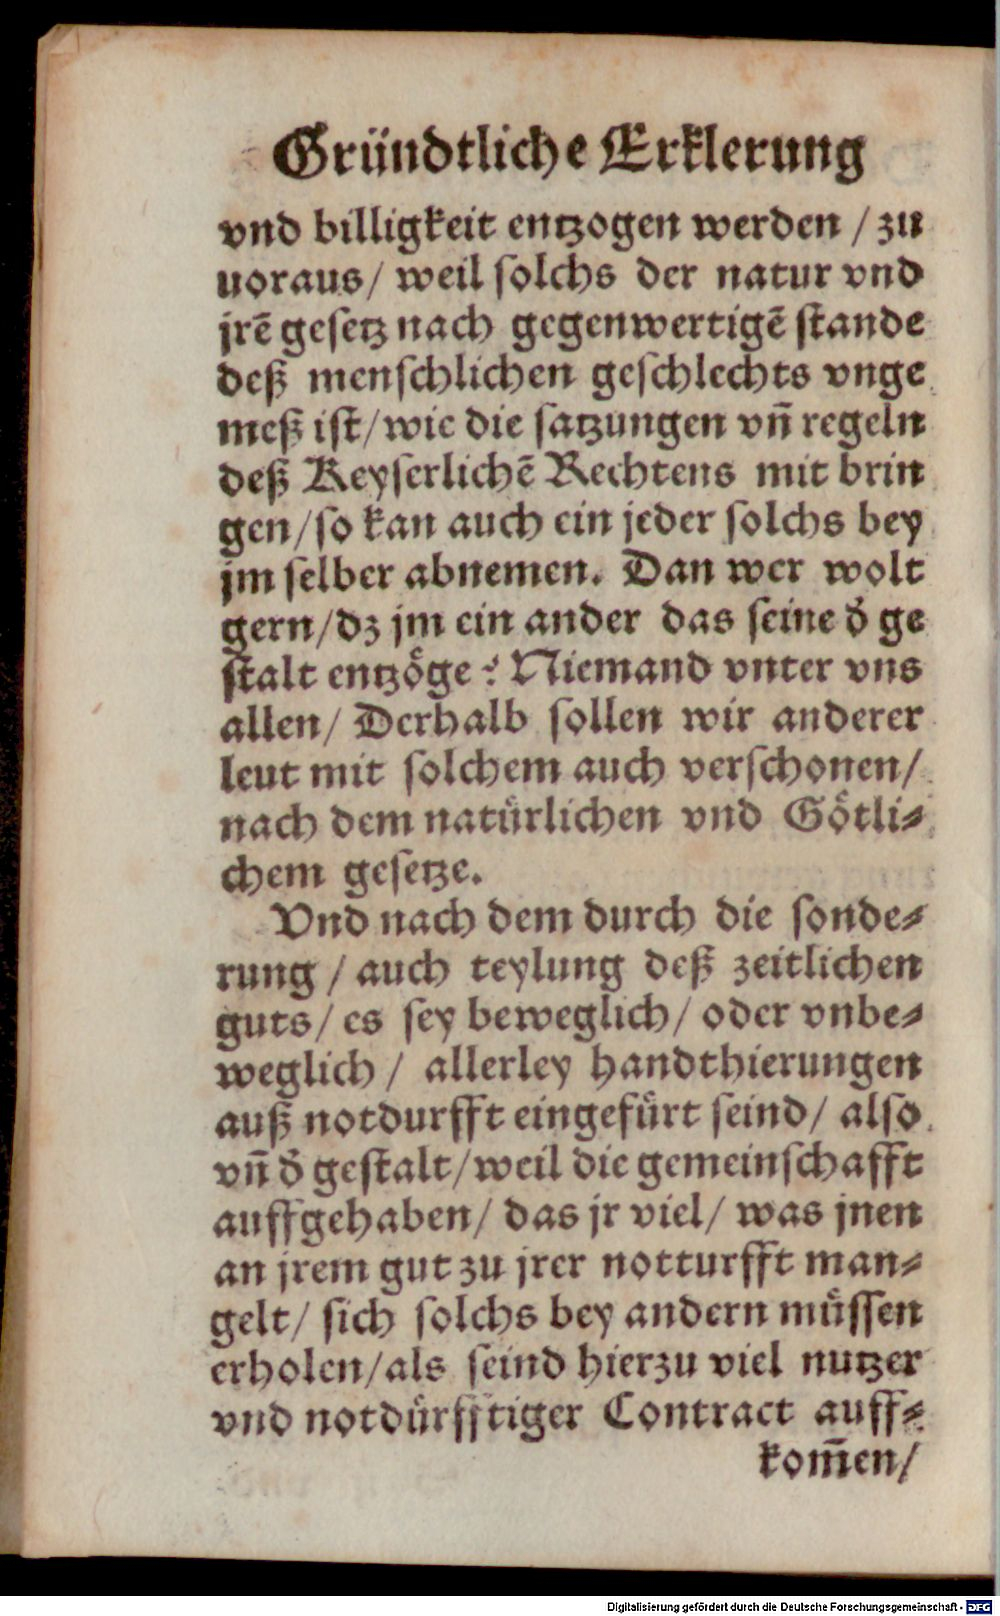 Gründtliche Erklerung
vnd billigkeit entzogen werden / zu
uoraus / weil solchs der natur vnd
jrē gesetz nach gegenwertigē stande
deß menschlichen geschlechts vnge
meß ist / wie die satzungen vn̄ regeln
deß Keyserlichē Rechtens mit brin
gen / so kan auch ein jeder solchs bey
jm selber abnemen. Dan wer wolt
gern / dz jm ein ander das seine d̕ ge
stalt entzöge? Niemand vnter vns
allen / Derhalb sollen wir anderer
leut mit solchem auch verschonen /
nach dem natürlichen vnd Götli⸗
chem gesetze.
Vnd nach dem durch die sonde⸗
rung / auch teylung deß zeitlichen
guts / es sey beweglich / oder vnbe⸗
weglich / allerley handthierungen
auß notdurfft eingefürt seind / also
vn̄ d̕ gestalt / weil die gemeinschafft
auffgehaben / das jr viel / was jnen
an jrem gut zu jrer notturfft man⸗
gelt / sich solchs bey andern müssen
erholen / als seind hierzu viel nutzer
vnd notdürfftiger Contract auff⸗
kom̄en /
Digitalisierung gefördert durch die Deutsche Forschungsgemeinschaft - DFG